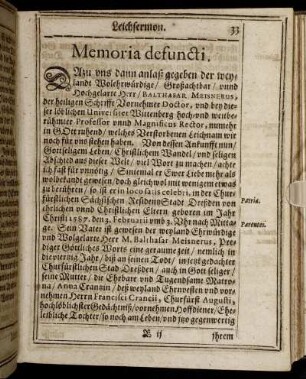 Leichsermon.
33
Memoria defuncti.
DAzu vns dann anlaß gegeben der wey-
landt Wolehrwürdige / Großachtbar / vnnd
Hochgelarte Herr / BALTHASAR MEISNERUS,
der heiligen Schrifft Vornehmer Doctor, vnd bey die-
ser löblichen Universitet Wittenberg hoch vnd weitbe-
rühmter Professor vnnd Magnificus Rector, nunmehr
in GOtt ruhend / welches Verstorbenen Leichnam wir
noch für vns stehen haben. Von dessen Ankunfft nun /
Gottseligem Leben / Christlichem Wandel / vnd seligen
Abschied aus dieser Welt / viel Wort zu machen / achte
ich fast für vnnötig / Sintemal er Ewer Liebe mehr als
wol bekandt gewesen, doch gleichwol mit wenigem etwas
zu berühren / so ist er in loco satis celebri, in der Chur-
fürstlichen Sächsischen Residentz Stadt Dreßden von
ehrlichen vnd Christlichen Eltern geboren im Jahr
Christi 1587. den 3. Februarii vmb 3. Vhr nach Mitta-
ge. Sein Vater ist gewesen der weyland Ehrwürdige
vnd Wolgelarte Herr M. Balthasar Meisnerus, Pre-
diger Göttliches Worts eine geraume zeit / nemlich in
die vierzig Jahr / biß an seinen Todt / in jetzt gedachter
Churfürstlichen Stad Dreßden / auch in Gott seliger /
seine Mutter / die Ehrbare vnd Tugendsame Matro-
na / Anna Cranzin / des weyland Ehrnvesten vnd vor-
nehmen Herrn Francisci Crancii, Churfürst Augusti,
hochlöblichster Gedächtniß / vornehmen Hoffdiener / Ehe-
leibliche Tochter / so noch am Leben / vnd itzo gegenwertig
Patria.
Parentes.
E ij
ihrem